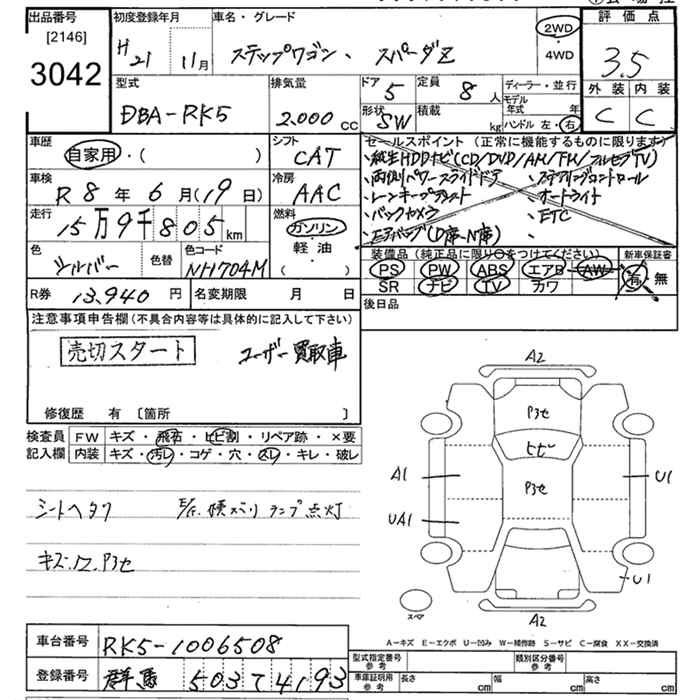 出品番号 初度登録年月 車名・グレード 2WD 評価点
[2146]
3042 H21 11月 ステップワゴン、スパーダZ 4WD 3.5
型式 排気量 ドア 5 定員 8人 ディーラー・並行 外装 内装
DBA-RK5 2.000cc 形状 SW 積載 kg モデル年式 年 C C
ハンドル 左・右
車歴 シフト セールスポイント(正常に機能するものに限ります)
自家用・( ) CAT ・純正HDDナビ(CD/DVD/AM/FM/フルセグTV)
車検 冷房 ・両側パワースライドドア ・ステアリングコントロール
R8年6月(19日) AAC ・レーンキープアシスト ・オートライト
走行 燃料 ・バックカメラ ・ETC
15万9千805km ガソリン ・エアバッグ(D席・N席)
色 色替 色コード 軽・油 装備品(純正品に限り○をつけてください) 新車保証書
シルバー NH704M ( ) PS PW ABS エアB AW 有・無
SR ナビ TV カワ
R券 13,940円 名変期限 月 日 後日品
注意事項申告欄(不具合内容等は具体的に記入して下さい)
売切スタート ユーザー買取車
修復歴 有 [箇所 ]
検査員 FW キズ・飛石・ヒビ割・リペア跡・×要
記入欄 内装 キズ・汚レ・コゲ・穴・スレ・キレ・破レ
シートヘタリ ランプ点灯
A2
P3セ
ヒビ
A1 P3セ U1
UA1
U1
スペア A2
A-キズ E-エクボ U-凹み W-補修跡 S-サビ C-腐食 XX-交換済
車台番号 RK5-1006508
型式指定番号 参考 類別区分番号 参考
登録番号 群馬 503 て 4193
車庫証明用 参考 長さ cm 幅 cm 高さ cm